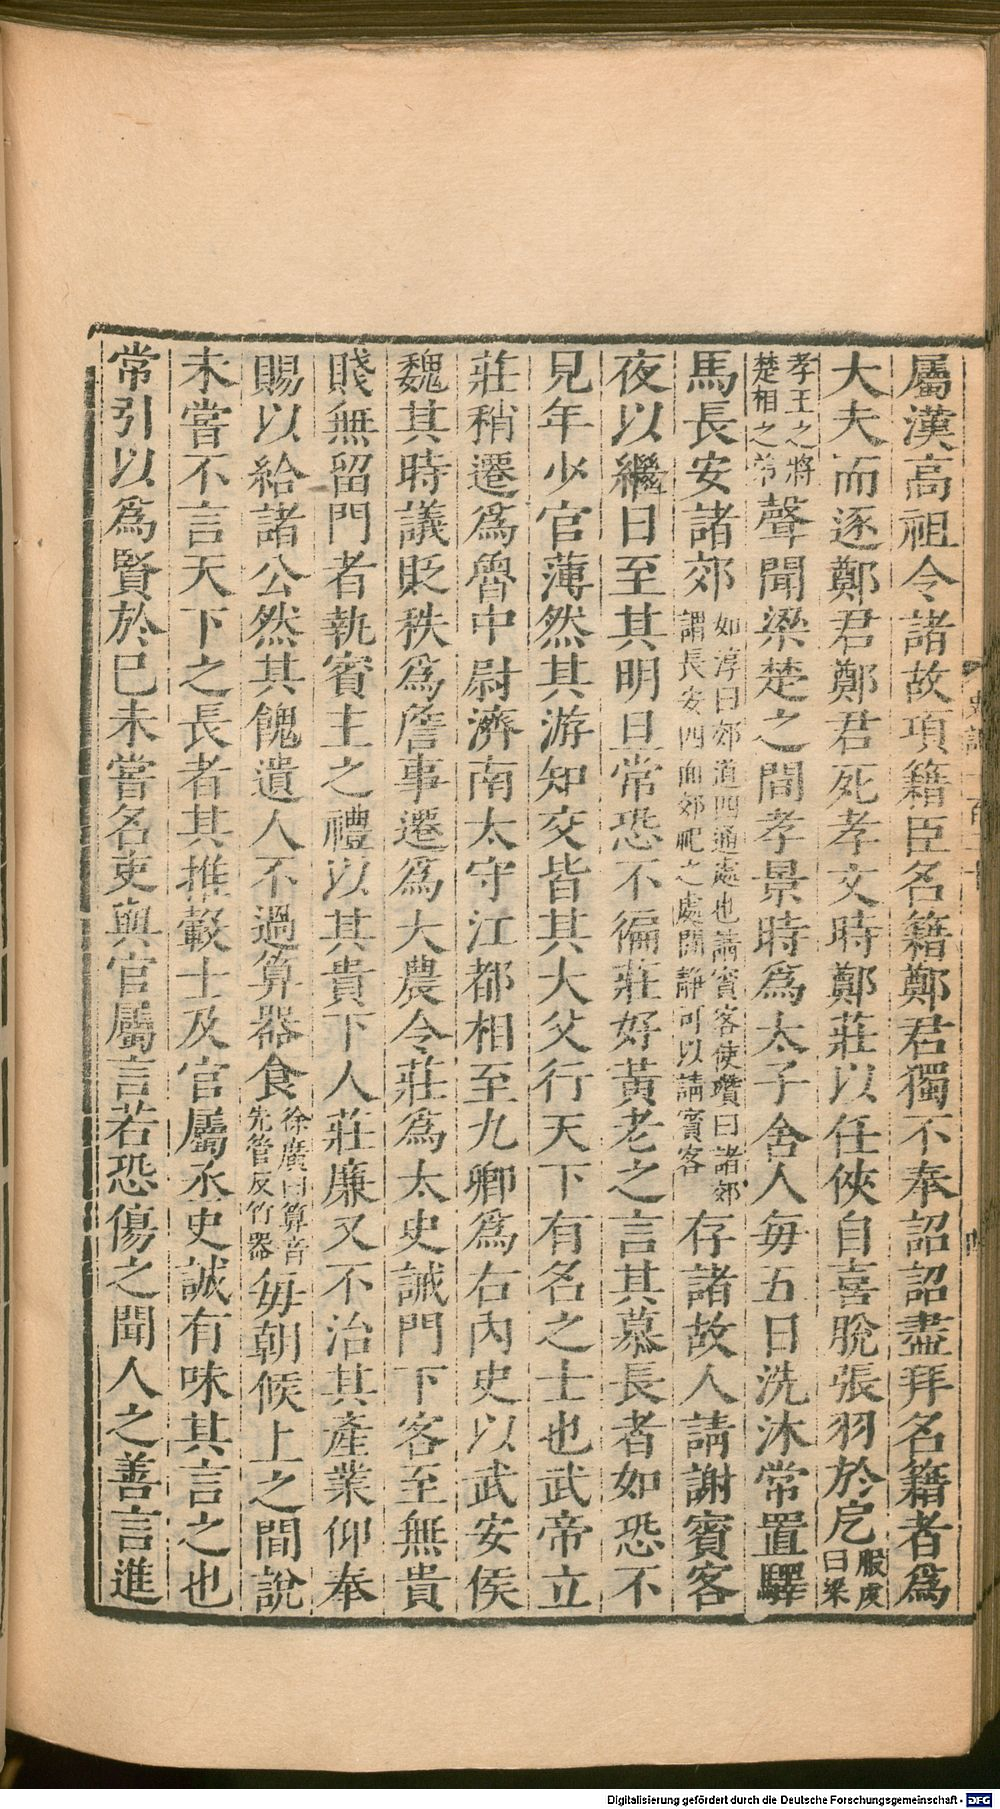 屬漢高祖令諸故項籍臣名籍鄭君獨不奉詔詔盡拜名籍者爲
大夫而逐鄭君鄭君死孝文時鄭莊以任俠自喜脫張羽於戹服虔曰梁
孝王之將楚相之弟聲聞梁楚之間孝景時爲太子舍人每五日洗沐常置驛
馬長安諸郊如淳曰郊道四通處也請賓客使瓚曰諸郊謂長安四面郊祀之處閒靜可以請賓客存諸故人請謝賓客
夜以繼日至其明旦常恐不徧莊好黃老之言其慕長者如恐不
見年少官薄然其游知交皆其大父行天下有名之士也武帝立
莊稍遷爲魯中尉濟南太守江都相至九卿爲右內史以武安侯
魏其時議貶秩爲詹事遷爲大農令莊爲太史誡門下客至無貴
賤無留門者執賓主之禮以其貴下人莊廉又不治其產業仰奉
賜以給諸公然其餽遺人不過算器食徐廣曰算音先管反竹器每朝候上之間說
未嘗不言天下之長者其推轂士及官屬丞史誠有味其言之也
常引以爲賢於已未嘗名吏與官屬言若恐傷之聞人之善言進
Digitalisierung gefördert durch die Deutsche Forschungsgemeinschaft - DFG